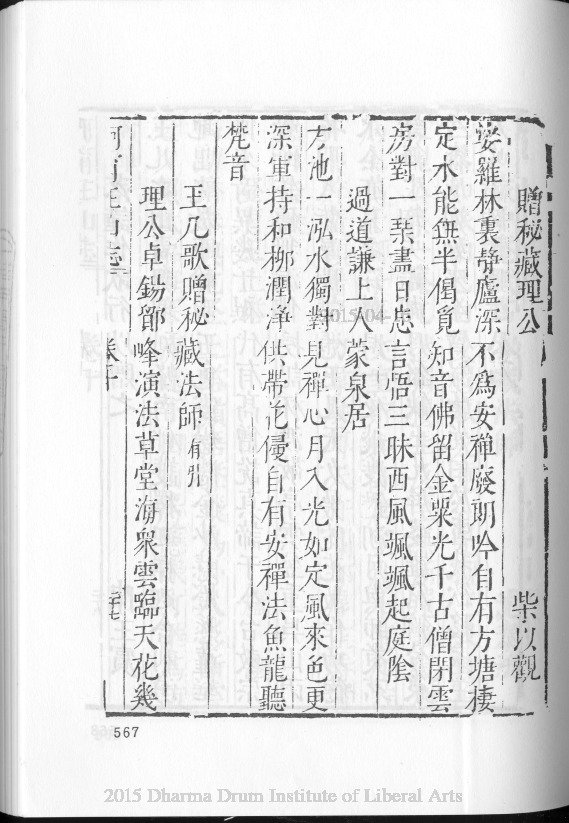 贈秘藏理公 柴以觀
娑羅林裏靜廬深不爲安禪廢朗吟自有方塘棲
定水能無半偈覓知音佛留金粟光千古僧閉雲
房對一琹盡日忘言悟三昧西風颯颯起庭陰
過道謙上人蒙泉居
方池一泓水獨對見禪心月入光如定風來色更
深軍持和栁潤淨供帶花侵自有安禪法魚龍聽
梵音
王几歌贈秘藏法師有引
理公卓錫鄮峰演法草堂海衆雲臨天花幾
阿育王山志 卷十 二十七
567
2015-04-
2015 Dharma Drum Institute of Liberal Arts